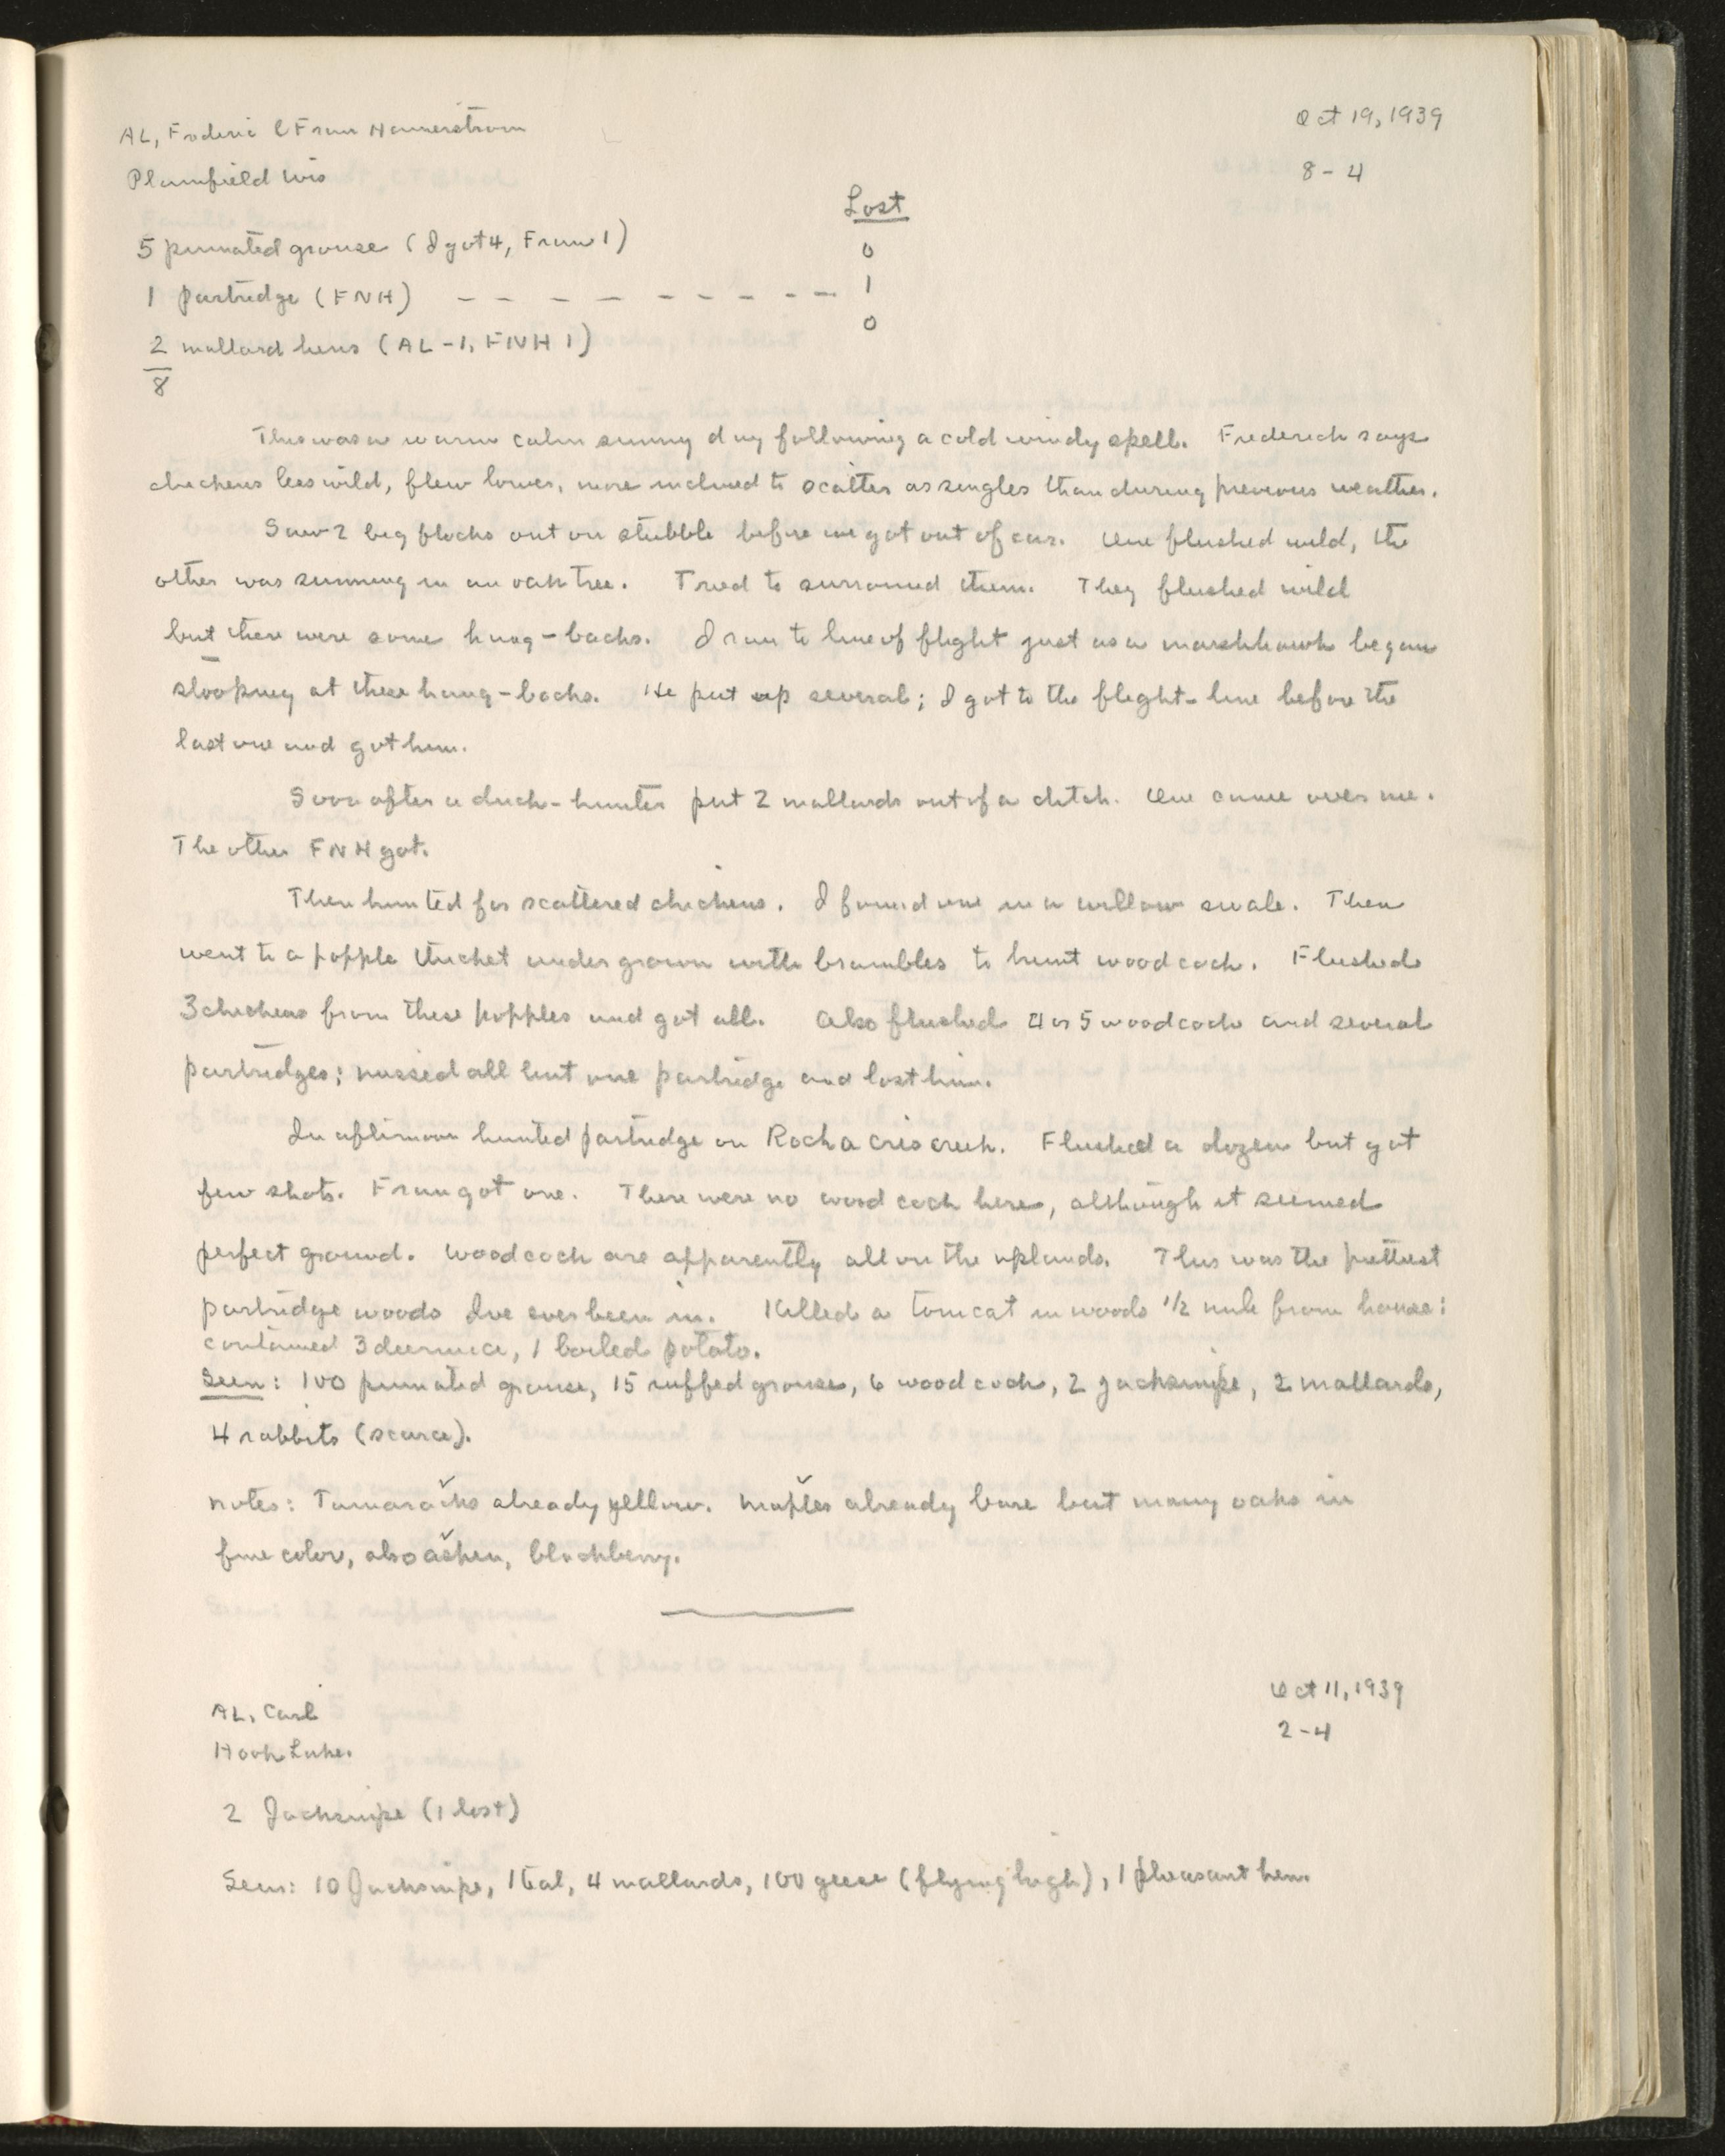 AL, Frederic & Fran Hamerstrom
Oct 19, 1939
Plainfield Wis
8 - 4
Lost
5 pinnated grouse (I got 4, Fran 1)
0
1 partridge (FNH) - - - - - - - - -
1
2 mallard hens (AL - 1, FNH 1)
0
8
This was a warm calm sunny day following a cold windy spell. Frederick says
chickens less wild, flew lower, more inclined to scatter as singles than during previous weather.
Saw 2 big flocks out on stubble before we got out of car. One flushed wild, the
other was sunning in an oak tree. Tried to surround them. They flushed wild
but there were some hang-backs. I ran to line of flight just as a marshhawk began
stooping at these hang-backs. He put up several; I got to the flight-line before the
last one and got him.
Soon after a duck-hunter put 2 mallards out of a ditch. One came over me.
The other FNH got.
Then hunted for scattered chickens. I found one in a willow swale. Then
went to a popple thicket undergrown with brambles to hunt woodcock. Flushed
3 chickens from these popples and got all. Also flushed 4 or 5 woodcock and several
partridges; missed all but one partridge and lost him.
In afternoon hunted partridge on Roch a cris creek. Flushed a dozen but got
few shots. Fran got one. There were no woodcock here, although it seemed
perfect ground. Woodcock are apparently all on the uplands. This was the prettiest
partridge woods Ive ever been in. Killed a tomcat in woods 1/2 mile from house:
contained 3 deermice, 1 boiled potato.
Seen: 100 pinnated grouse, 15 ruffed grouse, 6 woodcock, 2 jacksnipe, 2 mallards,
4 rabbits (scarce).
Notes: Tamaracks already yellow. Maples already bare but many oaks in
fine color, also aspen, blackberry.
AL, Carl
Oct 11, 1939
Hook Lake.
2 - 4
2 Jacksnipe (1 lost)
Seen: 10 Jacksnipe, 1 teal, 4 mallards, 100 geese (flying high), 1 pheasant hen.